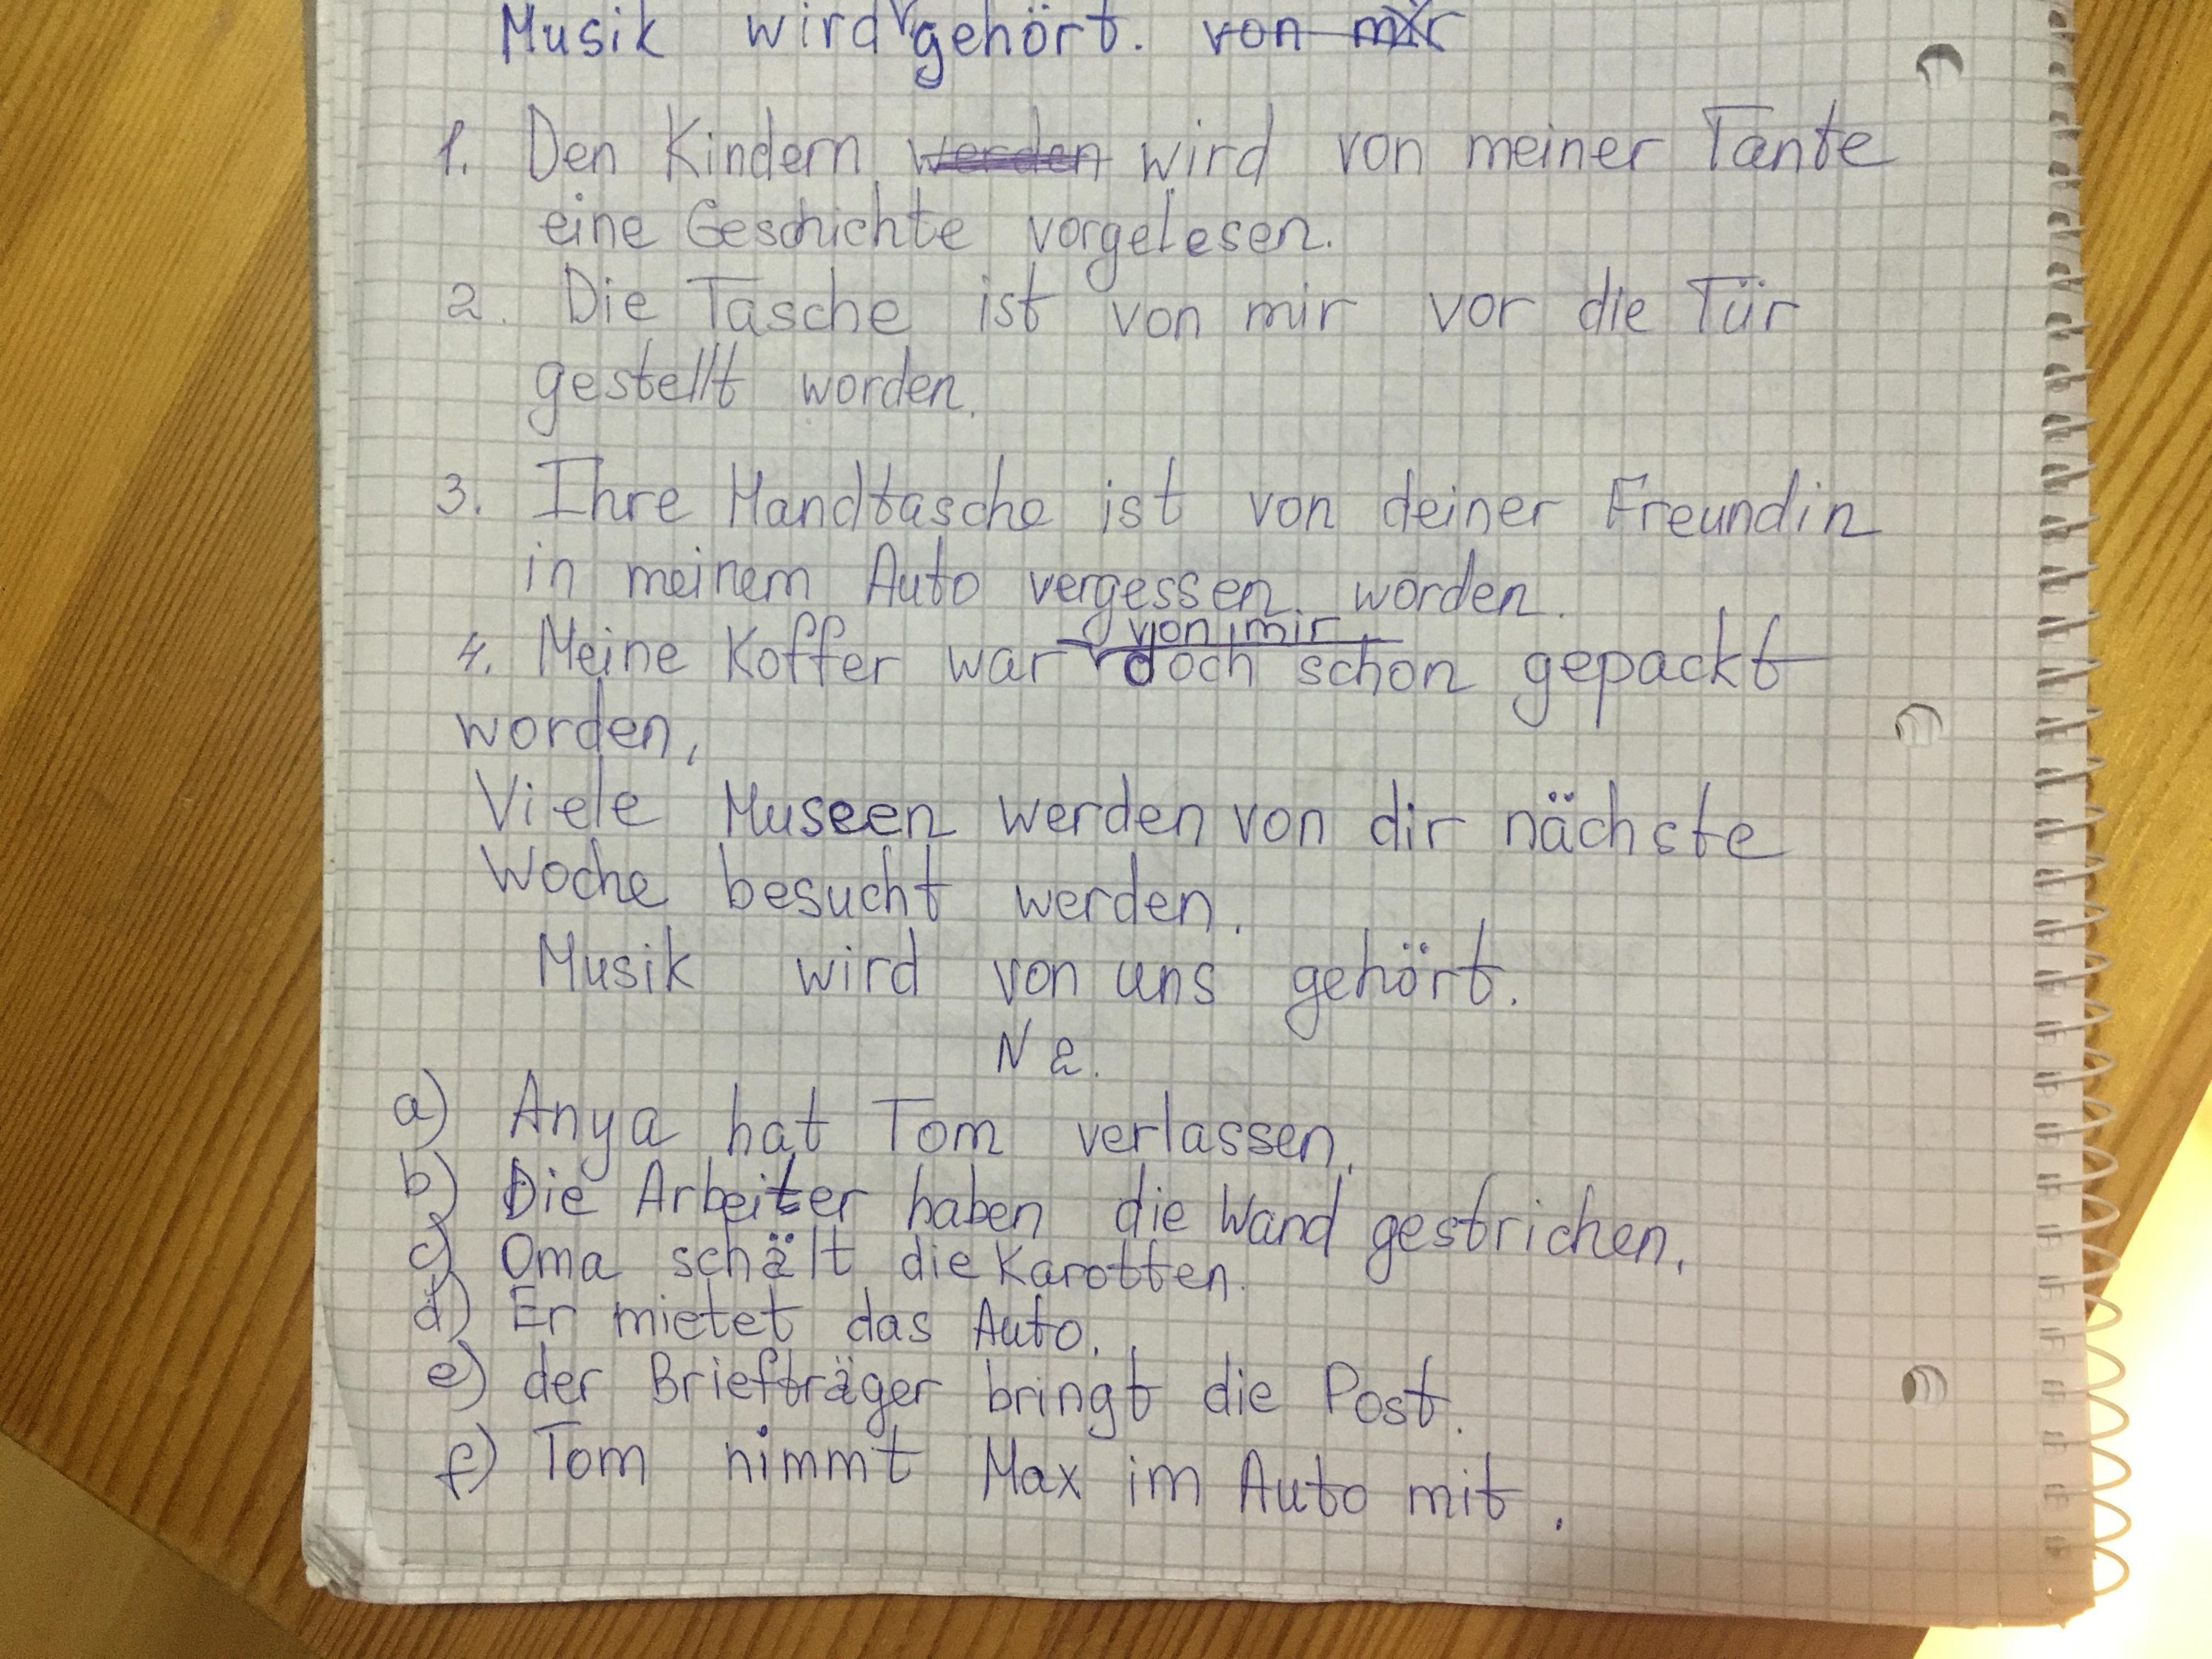 Musik wird gehört. von mir
1. Den Kindern werden wird von meiner Tante
eine Geschichte vorgelesen.
2. Die Tasche ist von mir vor die Tür
gestellt worden.
3. Ihre Handtasche ist von deiner Freundin
in meinem Auto vergessen worden.
von mir
4. Meine Koffer war doch schon gepackt
worden,
Viele Museen werden von dir nächste
Woche besucht werden.
Musik wird von uns gehört.
N 2.
a) Anya hat Tom verlassen.
b) Die Arbeiter haben die Wand gestrichen.
c) Oma schält die Karotten.
d) Er mietet das Auto.
e) der Briefträger bringt die Post.
f) Tom nimmt Max im Auto mit.